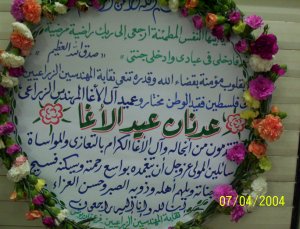 يا أيتها النفس المطمئنة ارجعي إلى ربك راضية مرضية
فادخلي في عبادي وادخلي جنتي
صدق الله العظيم
بقلوب مؤمنة بقضاء الله وقدره تنعي نقابة المهندسين الزراعيين
في فلسطين فقيد الوطن عميد آل الأغا المهندس الزراعي
عدنان عبد الأغا
ويتقدمون من أنجاله وآل الأغا الكرام بالتعازي والمواساة
سائلين المولى عز وجل أن يتغمده بواسع رحمته ويسكنه فسيح
جناته ويلهم أهله وذويه الصبر وحسن العزاء
وإنا إليه راجعون
نقابة المهندسين الزراعيين
07/04/2004